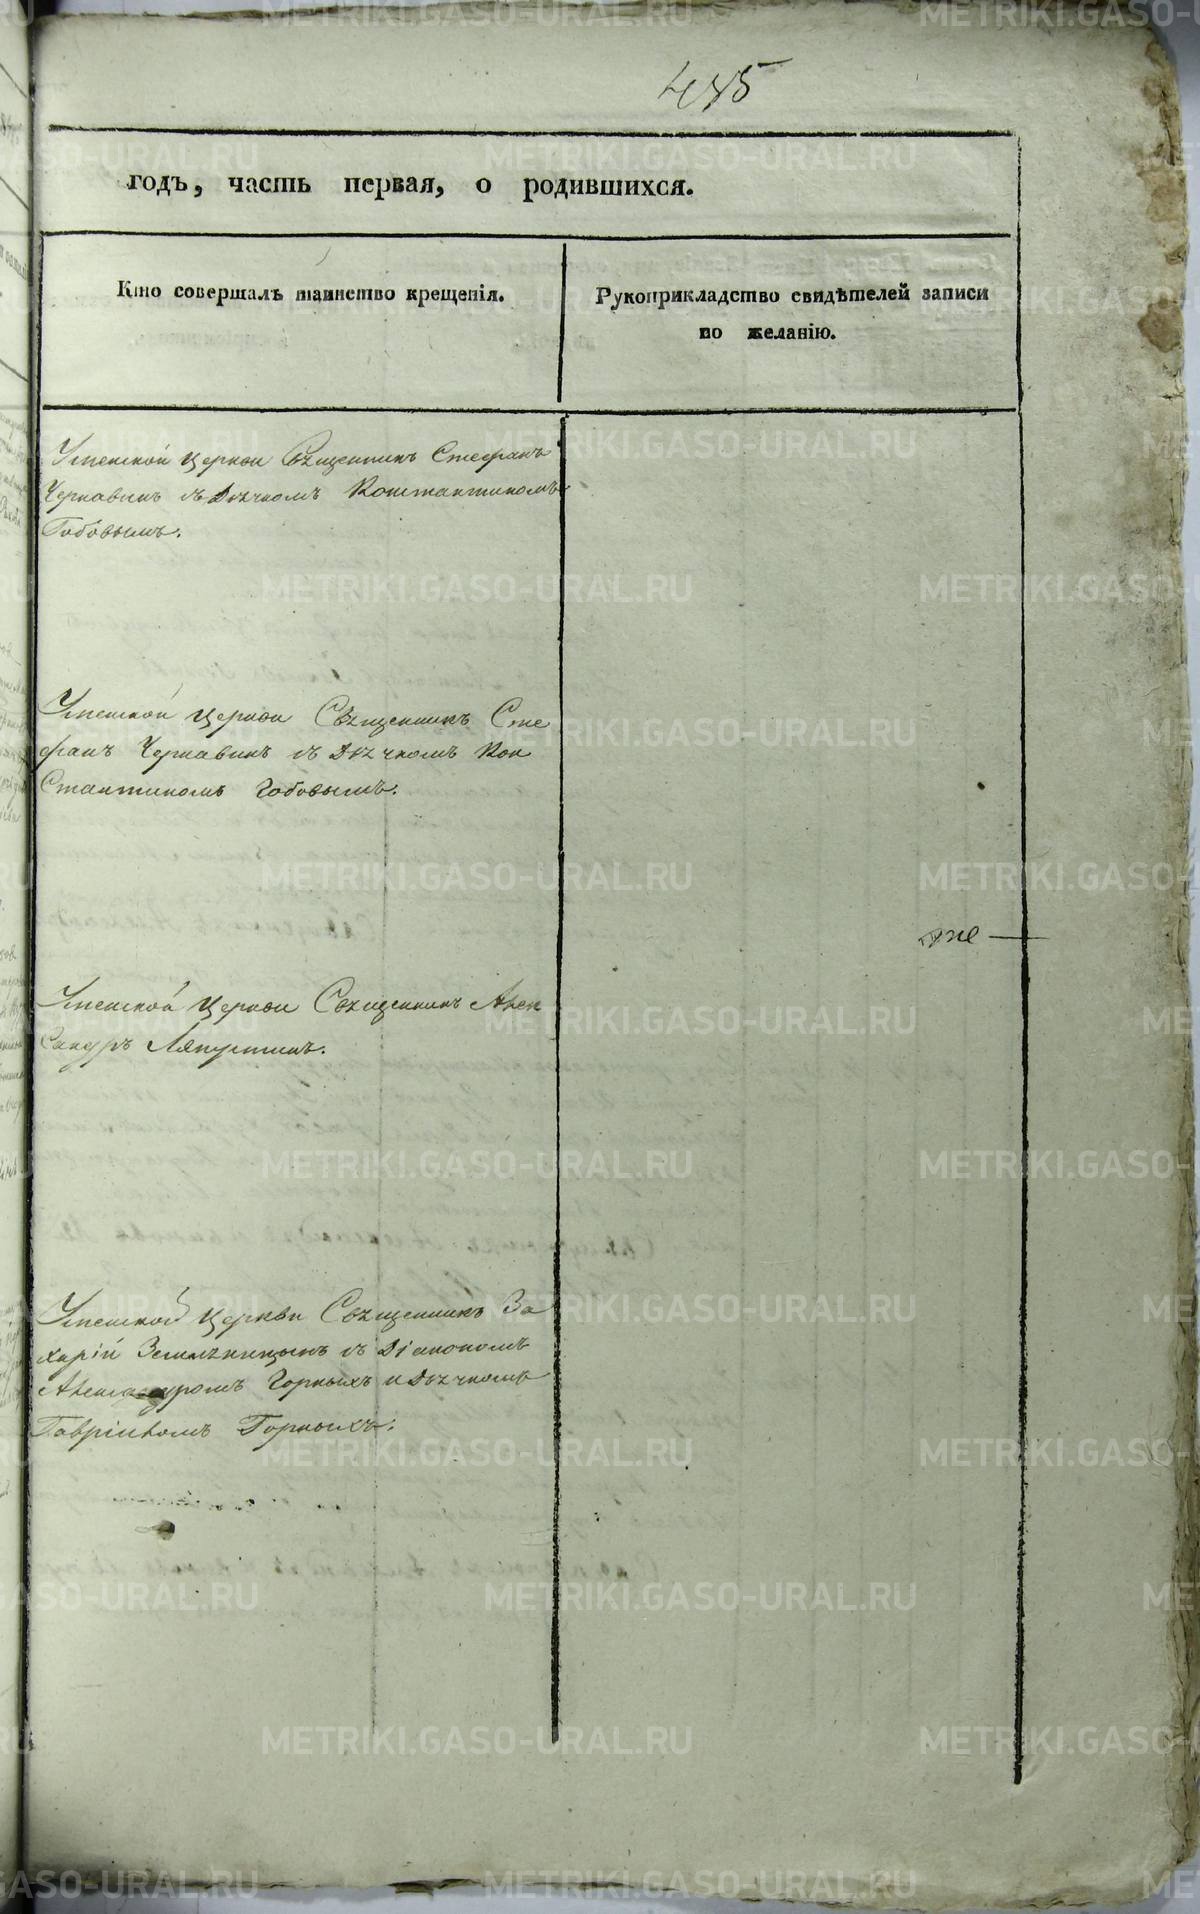 445
годъ, часть первая, о родившихся.
Кто совершалъ таинство крещенія.
Рукоприкладство свидѣтелей записи
по желанію.
Успенской Церкви Священникъ Стефанъ
Чернавинъ съ Дьячкомъ Константиномъ
Гобовымъ.
Успенской Церкви Священникъ Сте
фанъ Чернавинъ съ Дьячкомъ Кон
стантиномъ Гобовымъ.
Успенской Церкви Священникъ Алек
сандръ Ляпустинъ.
Успенской Церкви Священникъ За
харій Земляницынъ съ Діакономъ
Александромъ Горныхъ и Дьячкомъ
Гавріиломъ Горныхъ.
METRIKI.GASO-URAL.RU